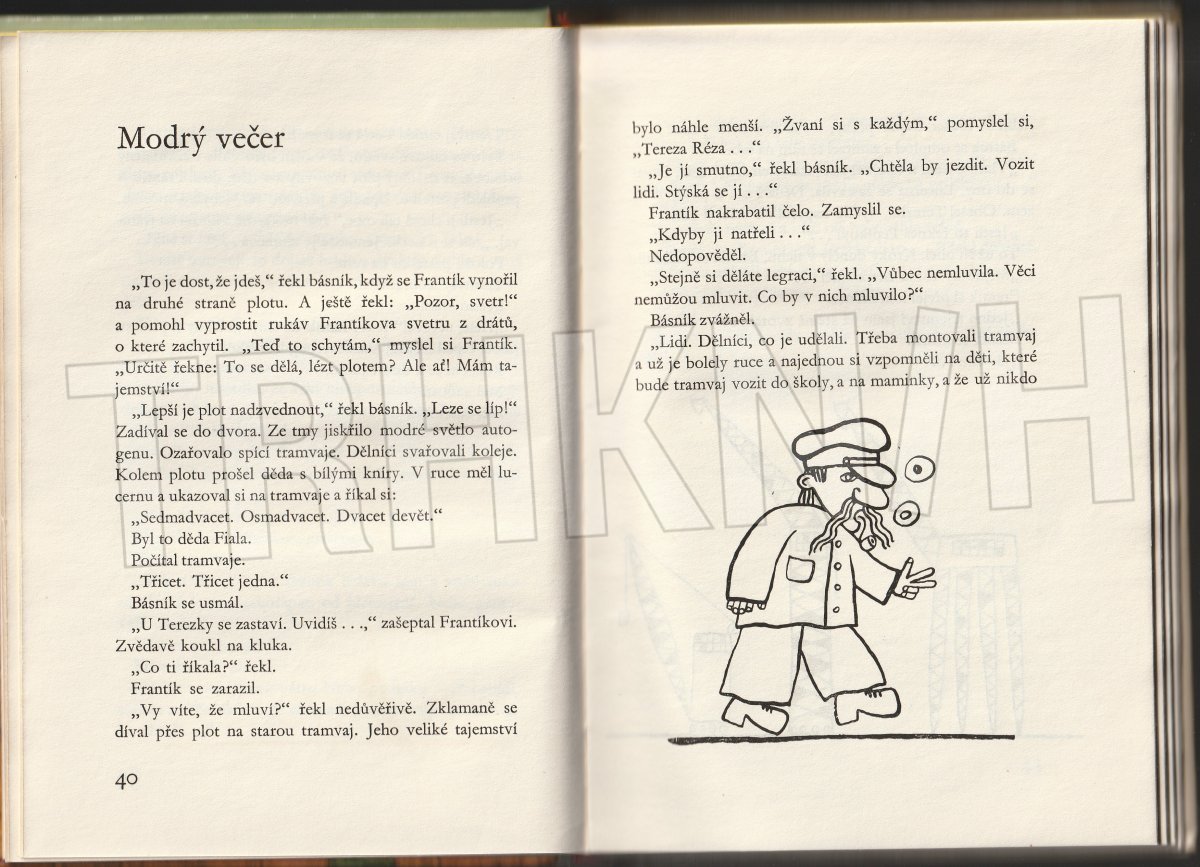 Modrý večer
„To je dost, že jdeš,“ řekl básník, když se Frantík vynořil
na druhé straně plotu. A ještě řekl: „Pozor, svetr!“
a pomohl vyprostit rukáv Frantíkova svetru z drátů,
o které zachytil. „Teď to schytám,“ myslel si Frantík.
„Určitě řekne: To se dělá, lézt plotem? Ale ať! Mám ta-
jemství!“
„Lepší je plot nadzvednout,“ řekl básník. „Leze se líp!“
Zadíval se do dvora. Ze tmy jiskřilo modré světlo auto-
genu. Ozařovalo spící tramvaje. Dělníci svařovali koleje.
Kolem plotu prošel děda s bílými kníry. V ruce měl lu-
cernu a ukazoval si na tramvaje a říkal si:
„Sedmadvacet. Osmadvacet. Dvacet devět.“
Byl to děda Fiala.
Počítal tramvaje.
„Třicet. Třicet jedna.“
Básník se usmál.
„U Terezky se zastaví. Uvidíš . . .,“ zašeptal Frantíkovi.
Zvědavě koukl na kluka.
„Co ti říkala?“ řekl.
Frantík se zarazil.
„Vy víte, že mluví?“ řekl nedůvěřivě. Zklamaně se
díval přes plot na starou tramvaj. Jeho veliké tajemství
40
bylo náhle menší. „Žvaní si s každým,“ pomyslel si,
„Tereza Réza . . .“
„Je jí smutno,“ řekl básník. „Chtěla by jezdit. Vozit
lidi. Stýská se jí . . .“
Frantík nakrabatil čelo. Zamyslil se.
„Kdyby ji natřeli . . .“
Nedopověděl.
„Stejně si děláte legraci,“ řekl. „Vůbec nemluvila. Věci
nemůžou mluvit. Co by v nich mluvilo?“
Básník zvážněl.
„Lidi. Dělníci, co je udělali. Třeba montovali tramvaj
a už je bolely ruce a najednou si vzpomněli na děti, které
bude tramvaj vozit do školy, a na maminky, a že už nikdo
TRHKNIH